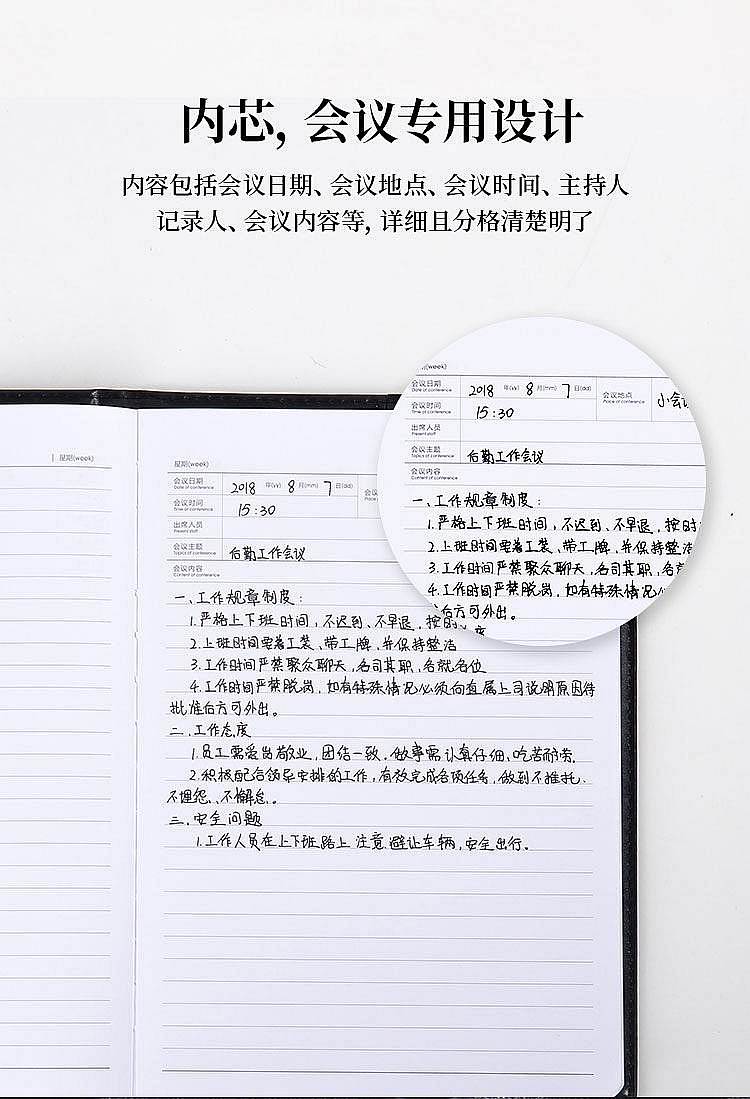 内芯, 会议专用设计
内容包括会议日期、会议地点、会议时间、主持人
记录人、会议内容等, 详细且分格清楚明了
星期(week)
会议日期 2018 年(yy) 8 月(mm) 7 日(dd) 会议地点 小会议
Date of conference Place of conference
会议时间 15:30
Time of conference
出席人员
Present staff
会议主题 后勤工作会议
Topics of conference
会议内容
Content of conference
一、工作规章制度:
1.严格上下班时间,不迟到、不早退,按时
2.上班时间需着工装、带工牌,并保持整洁
3.工作时间严禁聚众聊天,各司其职,各
4.工作时间严禁脱岗,如有特殊情况
后方可外出。
星期(week)
星期(week)
会议日期 2018 年(yy) 8 月(mm) 7 日(dd) 会议
Date of conference
会议时间 15:30
Time of conference
出席人员
Present staff
会议主题 后勤工作会议
Topics of conference
会议内容
Content of conference
一、工作规章制度:
1.严格上下班时间,不迟到、不早退,按时
2.上班时间需着工装、带工牌,并保持整洁
3.工作时间严禁聚众聊天,各司其职,各就各位
4.工作时间严禁脱岗,如有特殊情况必须向直属上司说明原因待
批准后方可外出。
二.工作态度
1.员工需爱岗敬业,团结一致,做事需认真仔细、吃苦耐劳.
2.积极配合领导安排的工作,有效完成各项任务,做到不推托、
不埋怨、不懈怠。
三.安全问题
1.工作人员在上下班路上注意避让车辆,安全出行。